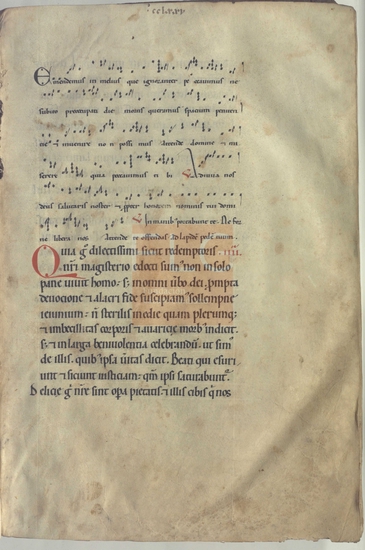 cclxxi
Emendemus in melius que ignoranter peccavimus ne
subito preocupati die mortis queramus spacium peniten
cie & invenire non possimus attende domine & mi
serere quia peccavimus ti bi Adiuva nos
deus salutaris noster & propter honorem nominis tui domi
ne libera nos Attende
Quia gͬ dilectissimi sicut redemptoris
nr̄i magisterio edocti sumꝰ non in solo
pane vivit homo · s; in omni v̄bo dei, p̄mpta
devocione & alacri fide suscipiamꝰ sollempne
ieiunium · n̄ sterilis inedie quam plerumq;
& imbecillitas corporis & avaricie morbꝰ indicit.
s; & in larga benivolentia celebrandū · ut simꝰ
de illis · quibꝰ ipsa v̄itas dicit. Beati qui esuri
unt & siciunt iusticiam · qm̄ ipsi saturabunt͛
Delicie gͦ nr̄e sint opa pietatis · & illis cibis qͥ nos